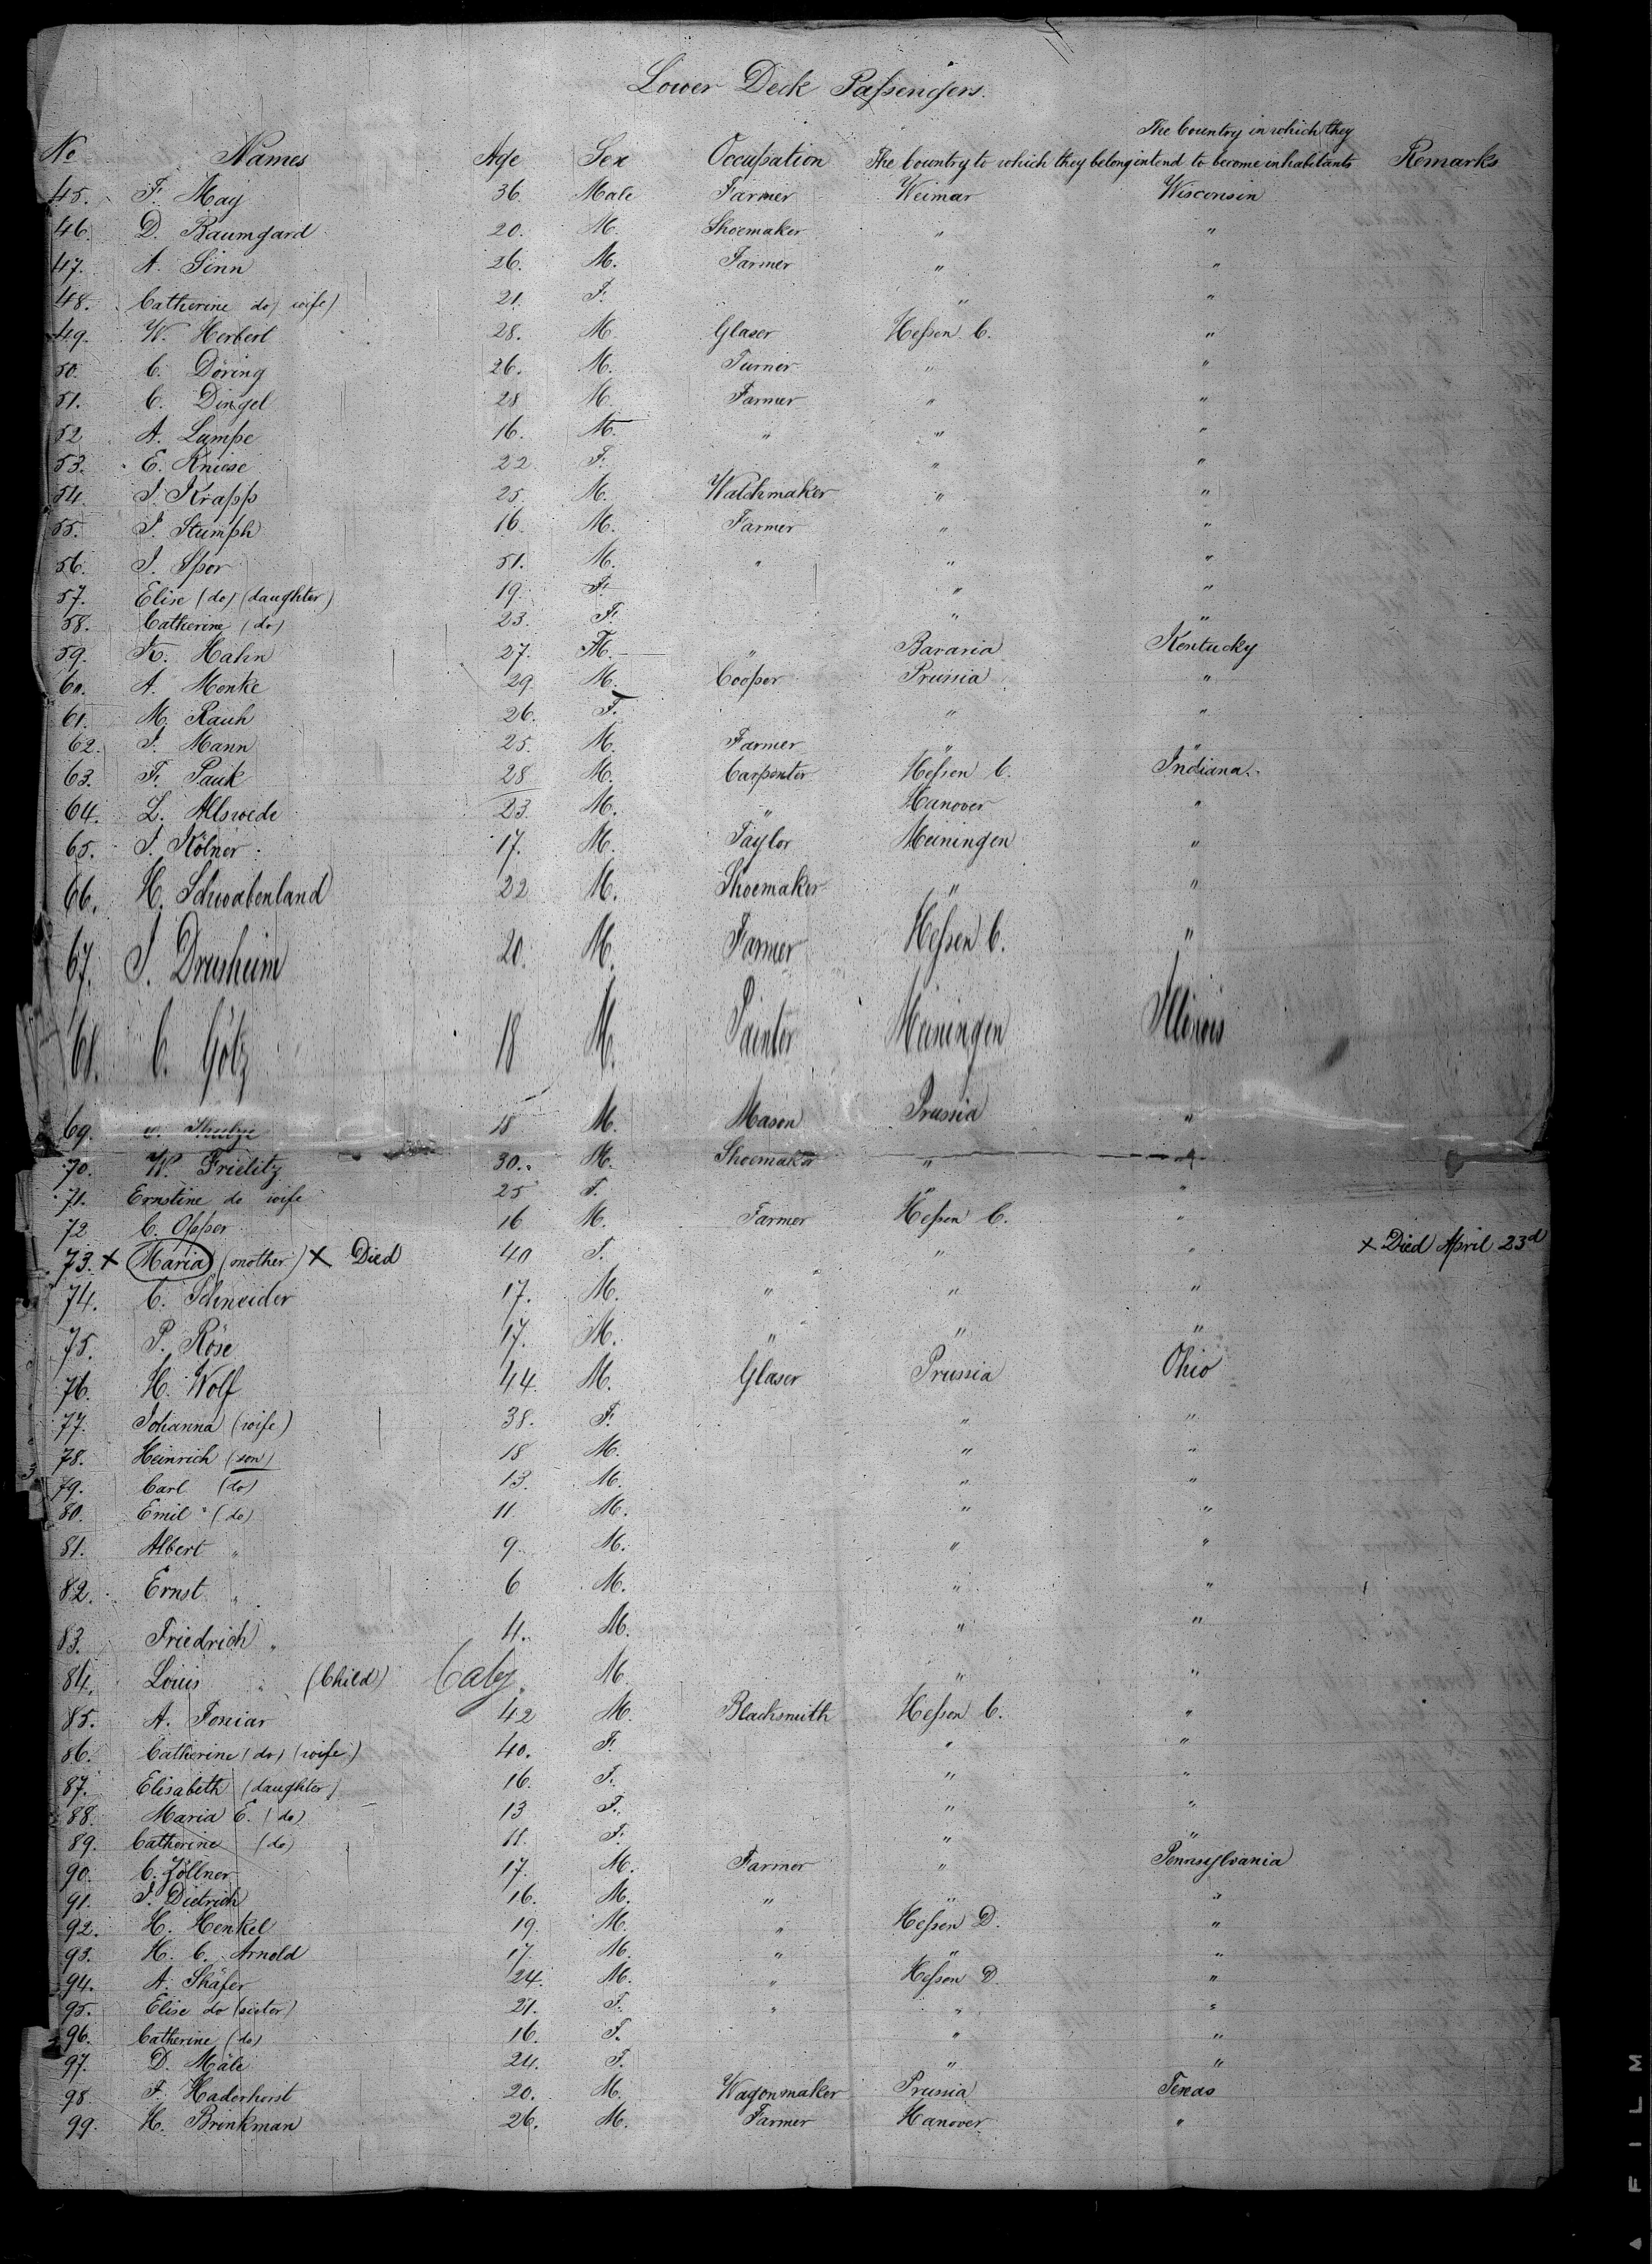 Lower Deck Passengers.
No Names Age Sex Occupation The Country to which they belong The Country in which they intend to become inhabitants Remarks
45. F. May 36. Male Farmer Weimar Wisconsin
46. D. Baumgard 20. M. Shoemaker " "
47. A. Sinn 26. M. Farmer " "
48. Catherine do) wife) 21. F. " "
49. W. Herbert 28. M. Glaser Hessen C. "
50. C. Döring 26. M. Turner " "
51. C. Dingel 28 M. Farmer " "
52 A. Lumpe 16. M. " " "
53. E. Kniese 22 F. " "
54. J. Krapp 25. M. Watchmaker " "
55. J. Stumph 16 M. Farmer " "
56. J. Spor 51. M. " " "
57. Elise (do) (daughter) 19. F. " "
58. Catherine (do) 23. F. " "
59. Hahn 27. M. " Bavaria Kentucky
60. A. Menke 29. M. Cooper Prussia "
61. M. Rauh 26. F. " "
62. J. Mann 25. M. Farmer " "
63. F. Pauk 28 M. Carpenter Hessen C. Indiana
64. L. Allswede 23. M. " Hanover "
65. J. Kölner 17. M. Taylor Meiningen "
66. H. Schwabenland 22 M. Shoemaker " "
67. J. Drusheim 20. M. Farmer Hessen C. "
68. C. Götz 18 M. Painter Meiningen Illinois
69. 18 M. Mason Prussia "
70. W. Frielitz 30. M. Shoemaker " "
71. Ernstine do wife 25 F. " "
72 C. Opper 16 M. Farmer Hessen C. "
73. x Maria (mother) x Died 40 F. " " x Died April 23d
74. C. Schneider 17. M. " " "
75. P. Röse 17. M. " " "
76. H. Wolf 44. M. Glaser Prussia Ohio
77. Johanna (wife) 38. F. " "
78. Heinrich (son) 18 M. " "
79. Carl (do) 13. M. " "
80. Emil (do) 11 M. " "
81. Albert " 9. M. " "
82. Ernst " 6 M. " "
83. Friedrich " 4. M. " "
84. Louis " (Child) Baby. M " "
85. A. Foniar 42 M. Blacksmith Hessen C. "
86. Catherine (do) (wife) 40. F. " "
87. Elisabeth (daughter) 16. F. " "
88. Maria E. (do) 13 F. " "
89. Catherine (do) 11. F. " "
90. C. Zöllner 17. M. Farmer " Pennsylvania
91. J. Dietrich 16. M. " " "
92. H. Henkel 19. M. " Hessen D. "
93. H. C. Arnold 17. M. " " "
94. A. Shäfer 24. M. " Hessen D. "
95. Elise do (sister) 21. F. " " "
96. Catherine (do) 16. F. " "
97. D. Mäle 24. F. " "
98 F. Haderhorst 20. M. Wagonmaker Prussia Texas
99. H. Brinkman 26. M. Farmer Hanover "
FILM